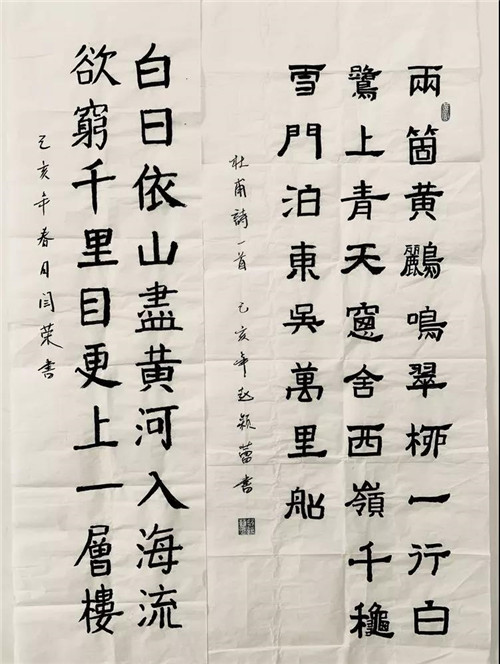 兩箇黃鸝鳴翠栁一行白
鷺上青天窻舍西嶺千穐
雪門泊東吳萬里船
杜甫詩一首 己亥年赵颖蕾書
白日依山盡黃河入海流
欲窮千里目更上一層樓
己亥年春月闫荣書